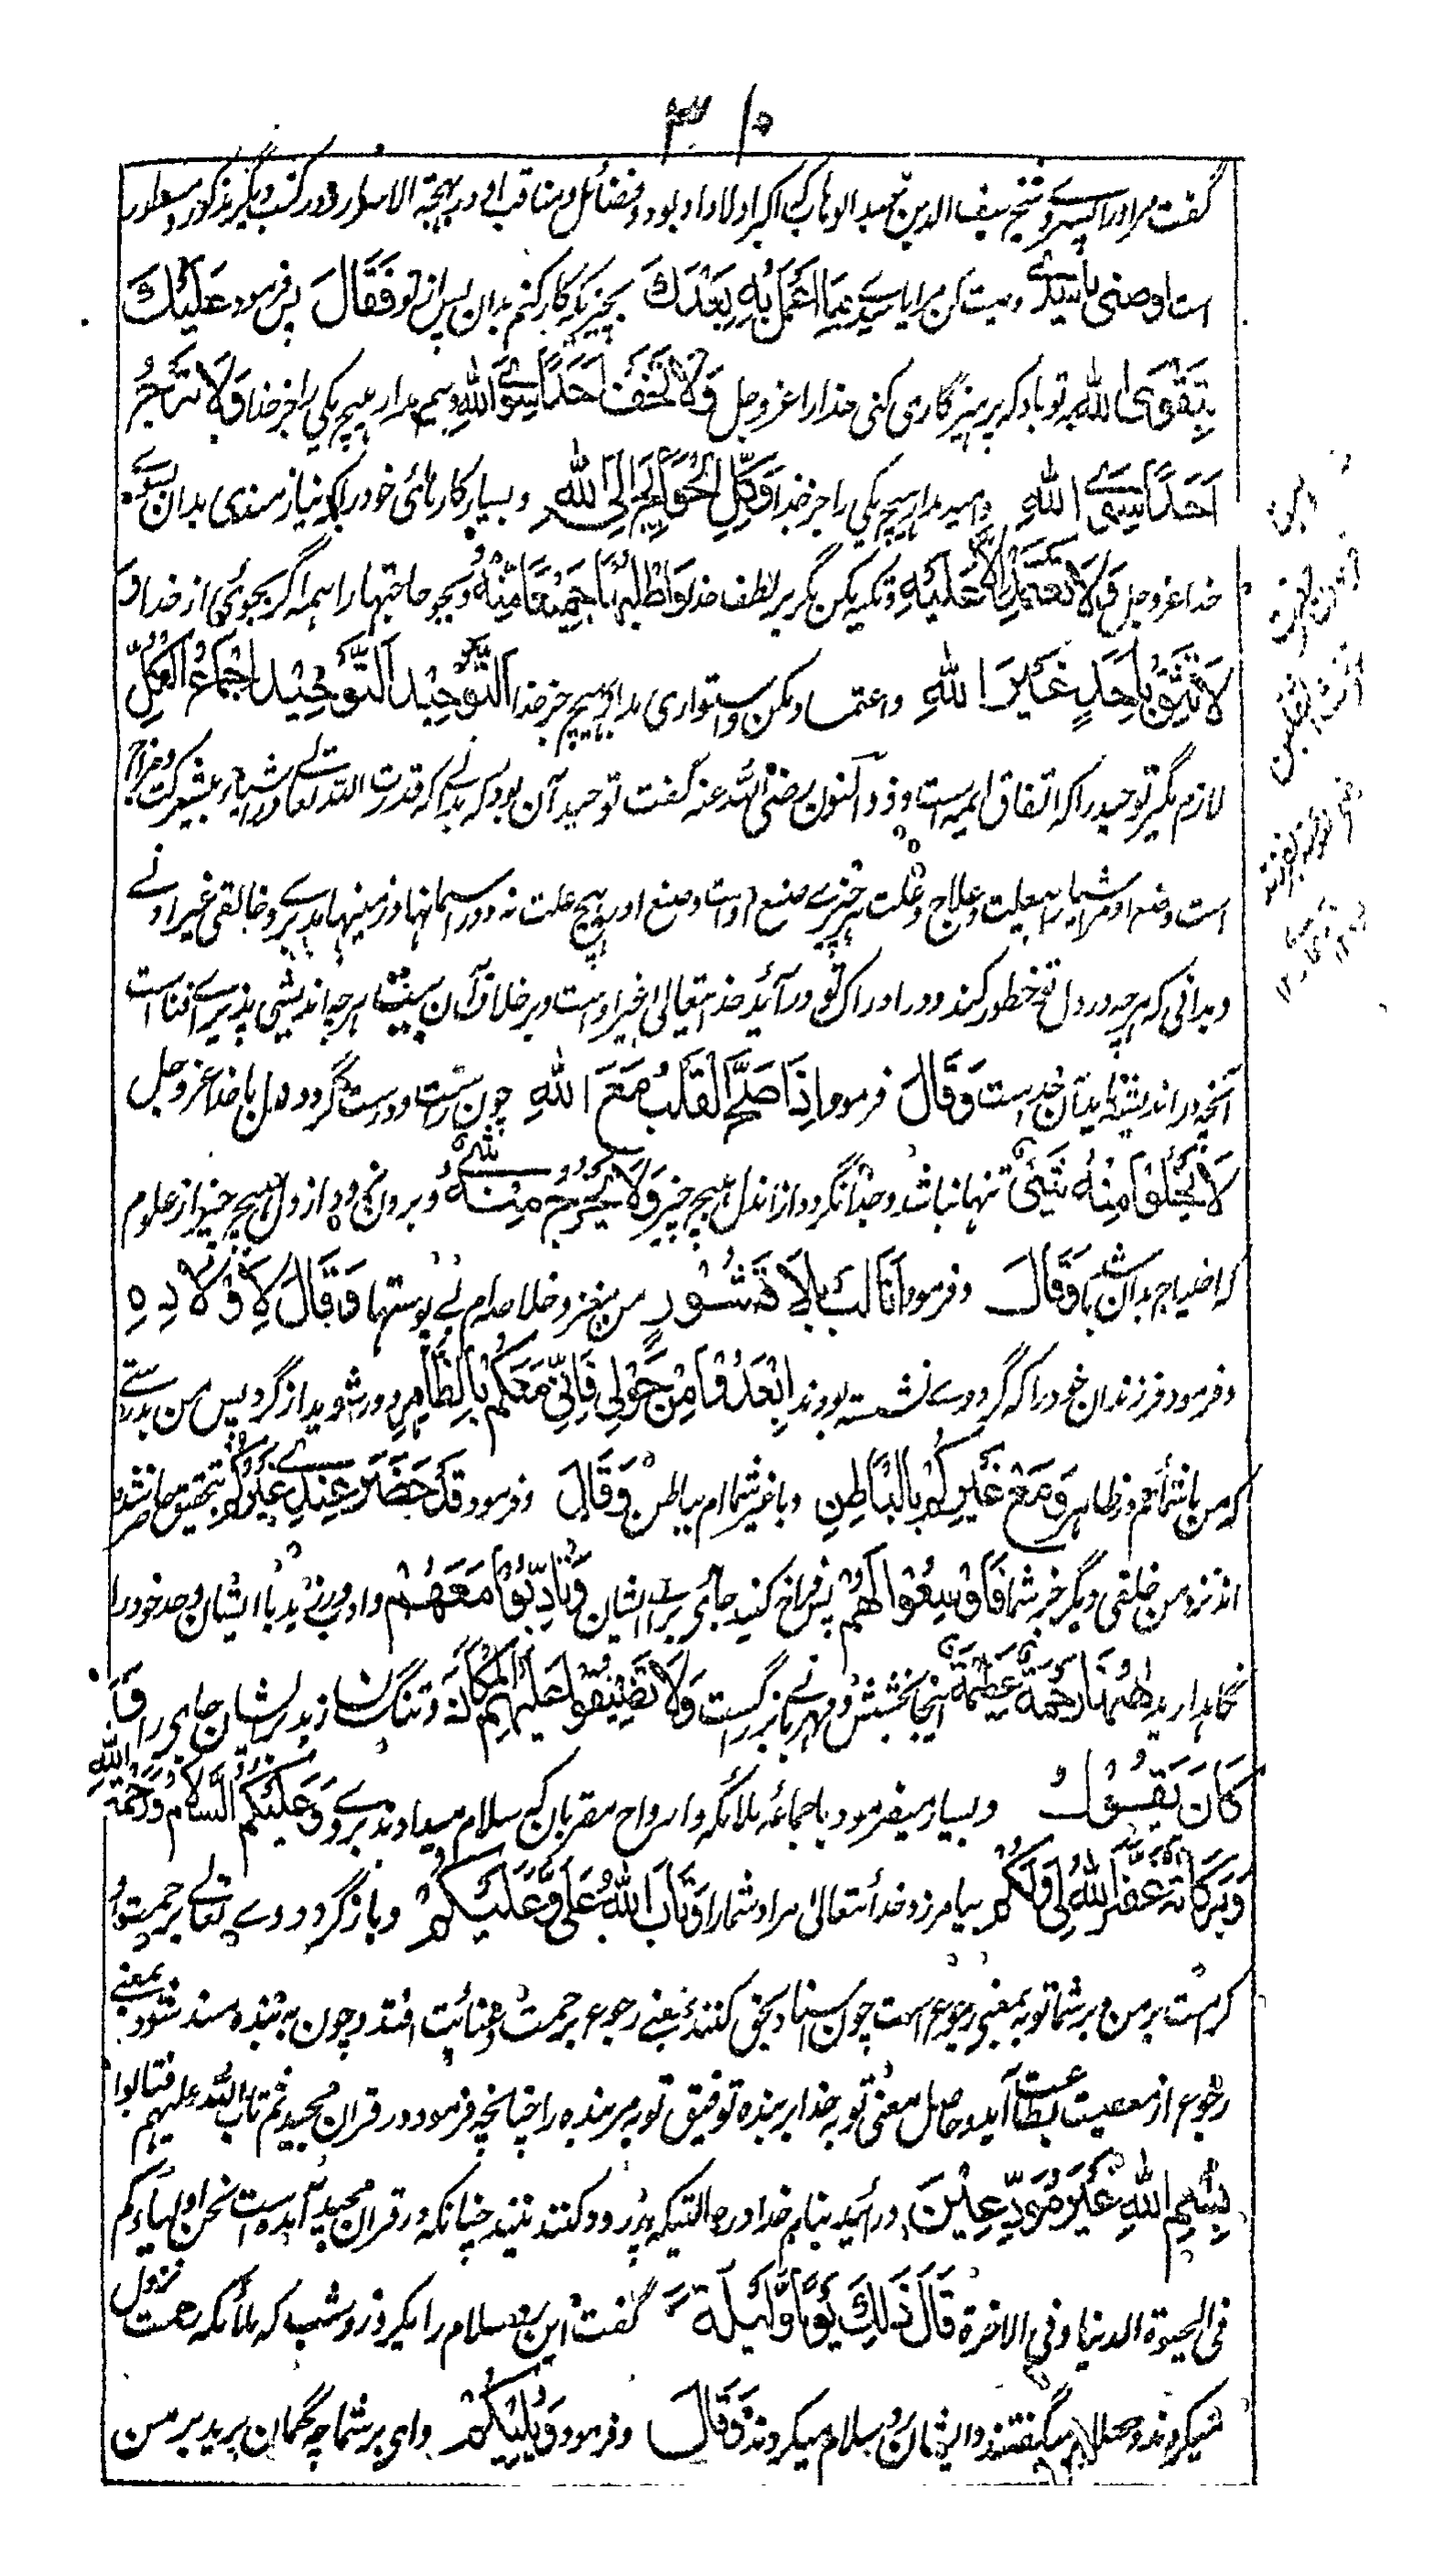 گفت مر او را پسر وے شیخ سیف الدین عبد الوهاب که اکبر اولاد او بود و فضائل و مناقب او در بهجة الاسرار و در کتب دیگر مذکور و مسطور
است اوصنی یا سیدی وصیت کن مرا یا سیدی بِمَا اَعْمَلُ بِهِ بَعْدَكَ بچیزیکه کار کنم بدان پس از تو فَقَالَ پس فرمود عَلَيْكَ
بِتَقْوَى اللهِ بر تو باد که پرهیزگاری کنی خدا را عز و جل وَلَا تَخَفْ اَحَدًا سِوَى اللهِ و بیم مدار هیچ یکی را جز خدا وَلَا تَرْجُ
اَحَدًا سِوَى اللهِ و امید مدار هیچ یکی را جز خدا وَكِلِ الْحَوَائِجَ اِلَى اللهِ و بسپار کارهائی خود را که نیازمندی بدان بسوی
خدا عز و جل وَلَا تَعْتَمِدْ اِلَّا عَلَيْهِ و تکیه مکن مگر بر لطف خدا وَاطْلُبْهَا جَمِيْعًا مِنْهُ و بجو حاجتها را همه اگر بجوئی از خدا وَ
لَا تَثِقْ بِاَحَدٍ غَيْرَ اللهِ و اعتماد مکن و استواری مدار بهیچ جز خدا اَلتَّوْحِيْدَ اَلتَّوْحِيْدَ اِجْمَاعُ الْكُلِّ
لازم گیر توحید را که اتفاق همه است و ذو النون رضی الله عنه گفت توحید آن بود که بدانی که قدرت الله تعالے در اشیاء بیشرکت و مزاج
است وضع او مر اشیا را بیعلت و علاج و علت هر چیزے صنع اوست و صنع او را هیچ علت نه و در آسمانها و زمینها مدبرے و خالقی غیر او نے
و بدانی که هر چه در دل تو خطور کند و در ادراک تو در آید خدا یتعالی غیر اوست و بر خلاف آن بیت هر چه اندیشی پذیرای فناست
آنچه در اندیشه ناید آن خداست وَقَالَ فرمود اِذَا صَحَّ الْقَلْبُ مَعَ اللهِ چون راست و درست گردد دل با خدا عز و جل
لَا يَخْلُوْ مِنْهُ شَيْئٌ تنها نباشد و جدا نگردد از آن دل هیچ چیز وَلَا يَخْرُجُ مِنْهُ شَيْئٌ و برون نرود از دل هیچ چیز از علوم
که احتیاج بدان باشد وَقَالَ و فرمود اَنَا لُبٌّ بِلَا قُشُوْرٍ من مغز و خلاصه ام بے پوستها وَقَالَ لِاَوْلَادِهِ
و فرمود فرزندان خود را که گرد وے نشسته بودند اِبْعُدُوْا مِنْ حَوْلِي فَاِنِّي مَعَكُمْ بِالظَّاهِرِ دور شوید از گرد پس من بدرستے
که من با شما ام در ظاهر وَمَعَ غَيْرِكُمْ بِالْبَاطِنِ و با غیر شما ام بباطن وَقَالَ و فرمود قَدْ حَضَرَ عِنْدِي غَيْرُكُمْ بتحقیق حاضر شده
اند نزد من خلقی دیگر جز شما فَاَوْسِعُوْا لَهُمْ پس فراخ کنید جای برای ایشان وَتَاَدَّبُوْا مَعَهُمْ و ادب ورزید با ایشان و حد خود را
نگاه دارید هٰهُنَا رَحْمَةٌ عَظِيْمَةٌ اینجا بخشش و مهربانی بزرگست وَلَا تُضَيِّقُوْا عَلَيْهِمُ الْمَكَانَ و تنگ نسازید بر ایشان جای را وَ
كَانَ يَقُوْلُ و بسیار میفرمود با جماعه ملائکه و ارواح مقربان که سلام میدادند بر وے وَعَلَيْكُمُ السَّلَامُ وَرَحْمَةُ اللهِ
وَبَرَكَاتُهُ غَفَرَ اللهُ لِي وَلَكُمْ بیامرزد خدا تعالی مرا و شما را وَتَابَ اللهُ عَلَيَّ وَعَلَيْكُمْ و باز گردد وے تعالے برحمت و
کرامت بر من و بر شما توبه بمعنی رجوع است چون اسناد بحق کنند بمعنے رجوع برحمت و عنایت افتد و چون به بنده مسند شود بمعنے
رجوع از معصیت بطاعت آید و حاصل معنی توبه خدا بر بنده توفیق توبه مر بنده را چنانچه فرمود در قرآن مجید ثم تاب الله علیهم لیتوبوا
بِسْمِ اللهِ غَيْرَ مُوَدِّعِيْنَ در آئید بنام خدا در حالتیکه پدرود کننده نیید چنانکه در قرآن مجید آمده است نحن اولیاءکم
فی الحیوة الدنیا و فی الاخرة قَالَ ذٰلِكَ يَوْمًا وَلَيْلَةً گفت این سلام را یکروز و شب که ملائکه رحمت نزول
میکردند و میگفتند و ایشان را سلام میکردند وَقَالَ و فرمود وَيْلَكُمْ وای بر شما چه گمان برید بر من